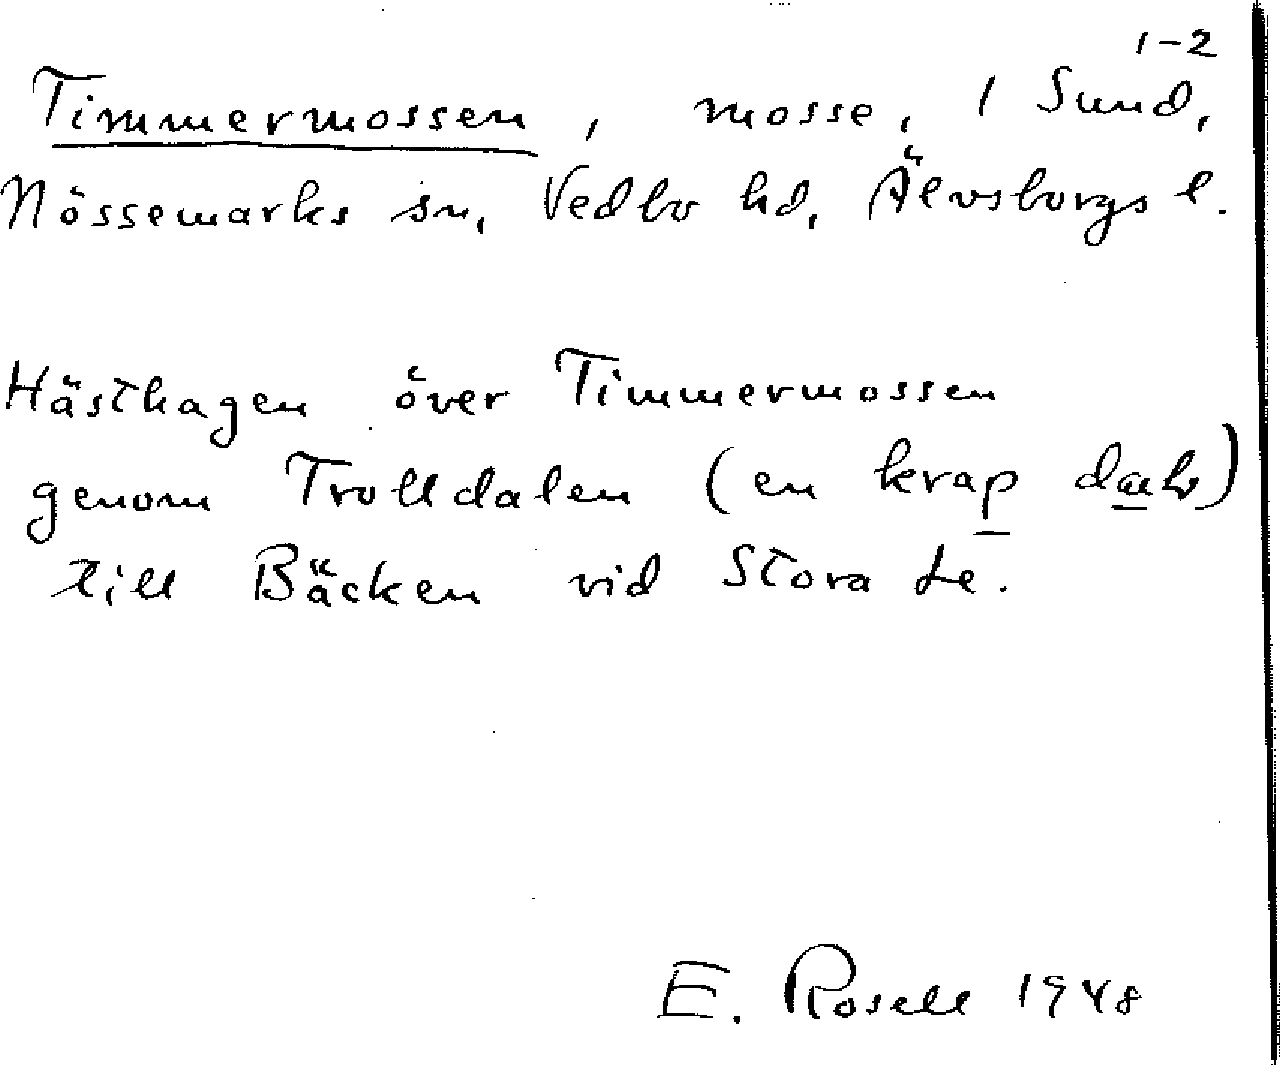 1-2
Timmermossen, mosse, 1 Sund,
Nössemarks sn, Vedbo hd, Älvsborgs l.
Hästhagen över Timmermossen
genom Trolldalen (en krap
till Bäcken vid Stora Le.
E. Rosell 1948